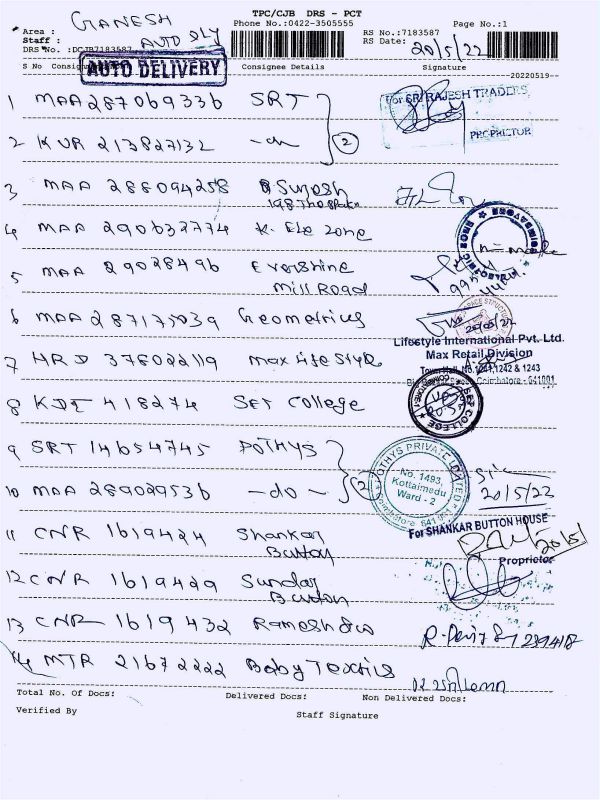 TPC/CJB DRS - PCT
Phone No.:0422-3505555
Page No.:1
GANESH
AUTO DLY
Area :
Staff :
DRS No. :DCJB7183587
RS No.:7183587
RS Date: 20/5/22
AUTO DELIVERY
S No Consignment Consignee Details Signature
20220519
1 MAA 287069336 SRT
For SRI RAJESH TRADERS
PROPRIETOR
2 KUR 213827132 - do -
2
3 MAA 288094258 Suresh
4 MAA 290632774 K. Ele Zone
5 MAA 29028496 Evershine
Mill Road
6 MAA 287175039 Geometrics
20/05/22
Lifestyle International Pvt. Ltd.
Max Retail Division
7 HRD 378022119 Max Life Style
Town Hall, No.1241,1242 & 1243
Coimbatore - 641001
8 KDI 418274 SET College
SET COLLEGE
9 SRT 14654745 POTHYS
POTHYS PRIVATE LIMITED
No. 1493,
Kottaimedu
Ward - 2
Coimbatore 641
10 MAA 289029536 - do -
2
20/5/22
11 CNR 1619424 Shankar
Button
For SHANKAR BUTTON HOUSE
Proprietor
12 CNR 1619429 Sundar
Button
13 CNR 1619432 Ramesh & Co
14 MTR 21672222 Baby Textiles
Total No. Of Docs: Delivered Docs: Non Delivered Docs:
Verified By Staff Signature